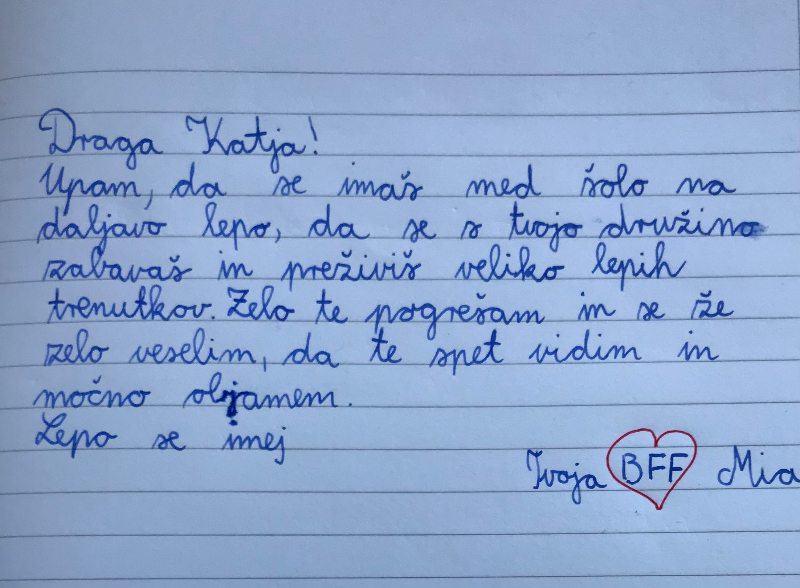 Draga Katja!
Upam, da se imaš med šolo na
daljavo lepo, da se s tvojo družino
zabavaš in preživiš veliko lepih
trenutkov. Zelo te pogrešam in se že
zelo veselim, da te spet vidim in
močno objamem.
Lepo se imej
Tvoja BFF Mia